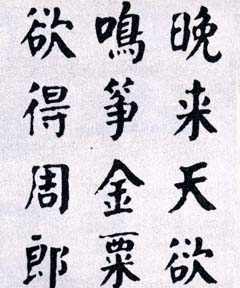 晚来天欲
鳴筝金粟
欲得周郎